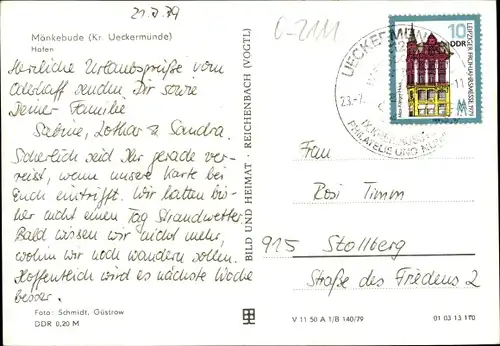 21.7.79
C-2111
Mönkebude (Kr. Ueckermünde)
Hafen
Herzliche Urlaubsgrüße vom
Oderhaff senden Dir sowie
Deiner Familie
Sabine, Lothar & Sandra.
Sicherlich seid Ihr gerade ver-
reist, wenn unsere Karte bei
Euch eintrifft. Wir hatten bis-
her nicht einen Tag Strandwetter
Bald wissen wir nicht mehr,
wohin wir noch wandern sollen.
Hoffentlich wird es nächste Woche
besser.
Foto: Schmidt, Güstrow
DDR 0,20 M
BILD UND HEIMAT · REICHENBACH (VOGTL)
UECKERMÜNDE
23.-7.
11
PHILATELIE UND
10
DDR
LEIPZIGER FRÜHJAHRSMESSE 1979
Frau
Rosi Timm
915 Stollberg
Straße des Friedens 2
V 11 50 A 1/B 140/79
01 03 13 110